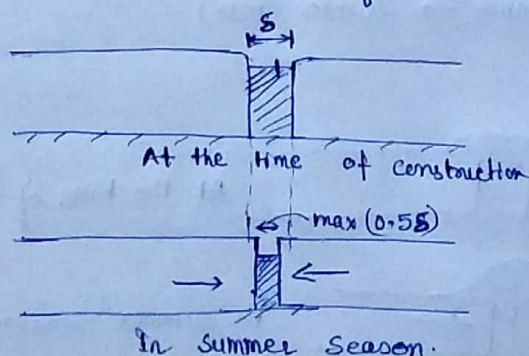 δ
At the time of construction
max (0.5δ)
In summer season.